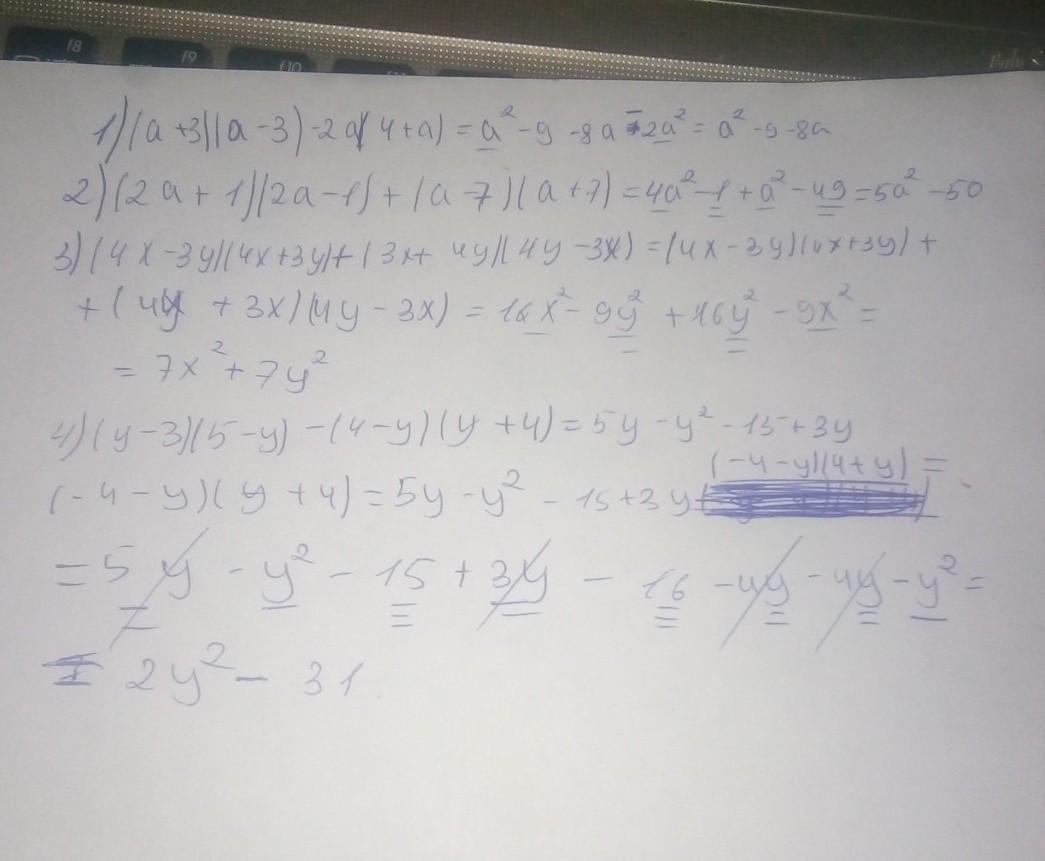 f8 f9 f10
1) (a+3)(a-3)-2a(4+a) = a² - 9 - 8a - 2a² = a² - 9 - 8a
2) (2a+1)(2a-1)+(a-7)(a+7) = 4a² - 1 + a² - 49 = 5a² - 50
3) (4x-3y)(4x+3y)+(3x+4y)(4y-3x) = (4x-3y)(4x+3y) +
+ (4y + 3x)(4y - 3x) = 16x² - 9y² + 16y² - 9x² =
= 7x² + 7y²
4) (y-3)(5-y) - (4-y)(y+4) = 5y - y² - 15 + 3y
(-4-y)(4+y) =
(-4-y)(y+4) = 5y - y² - 15 + 3y
= 5y - y² - 15 + 3y - 16 - 4y - 4y - y² =
2y² - 31.